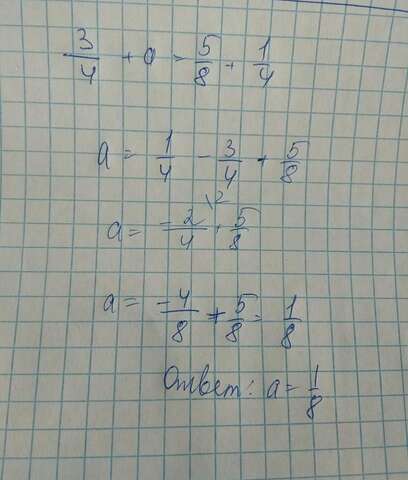 3/4 + a = 5/8 + 1/4
a = 1/4 - 3/4 + 5/8
a = -2/4 \2 + 5/8
a = -4/8 + 5/8 = 1/8
Ответ: a = 1/8